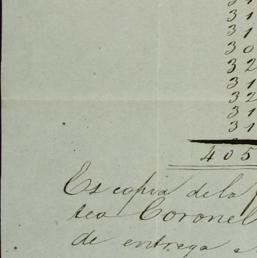 31
31
30
32
31
32
31
31
405
Es copia de la
tea Coronel
de entrega